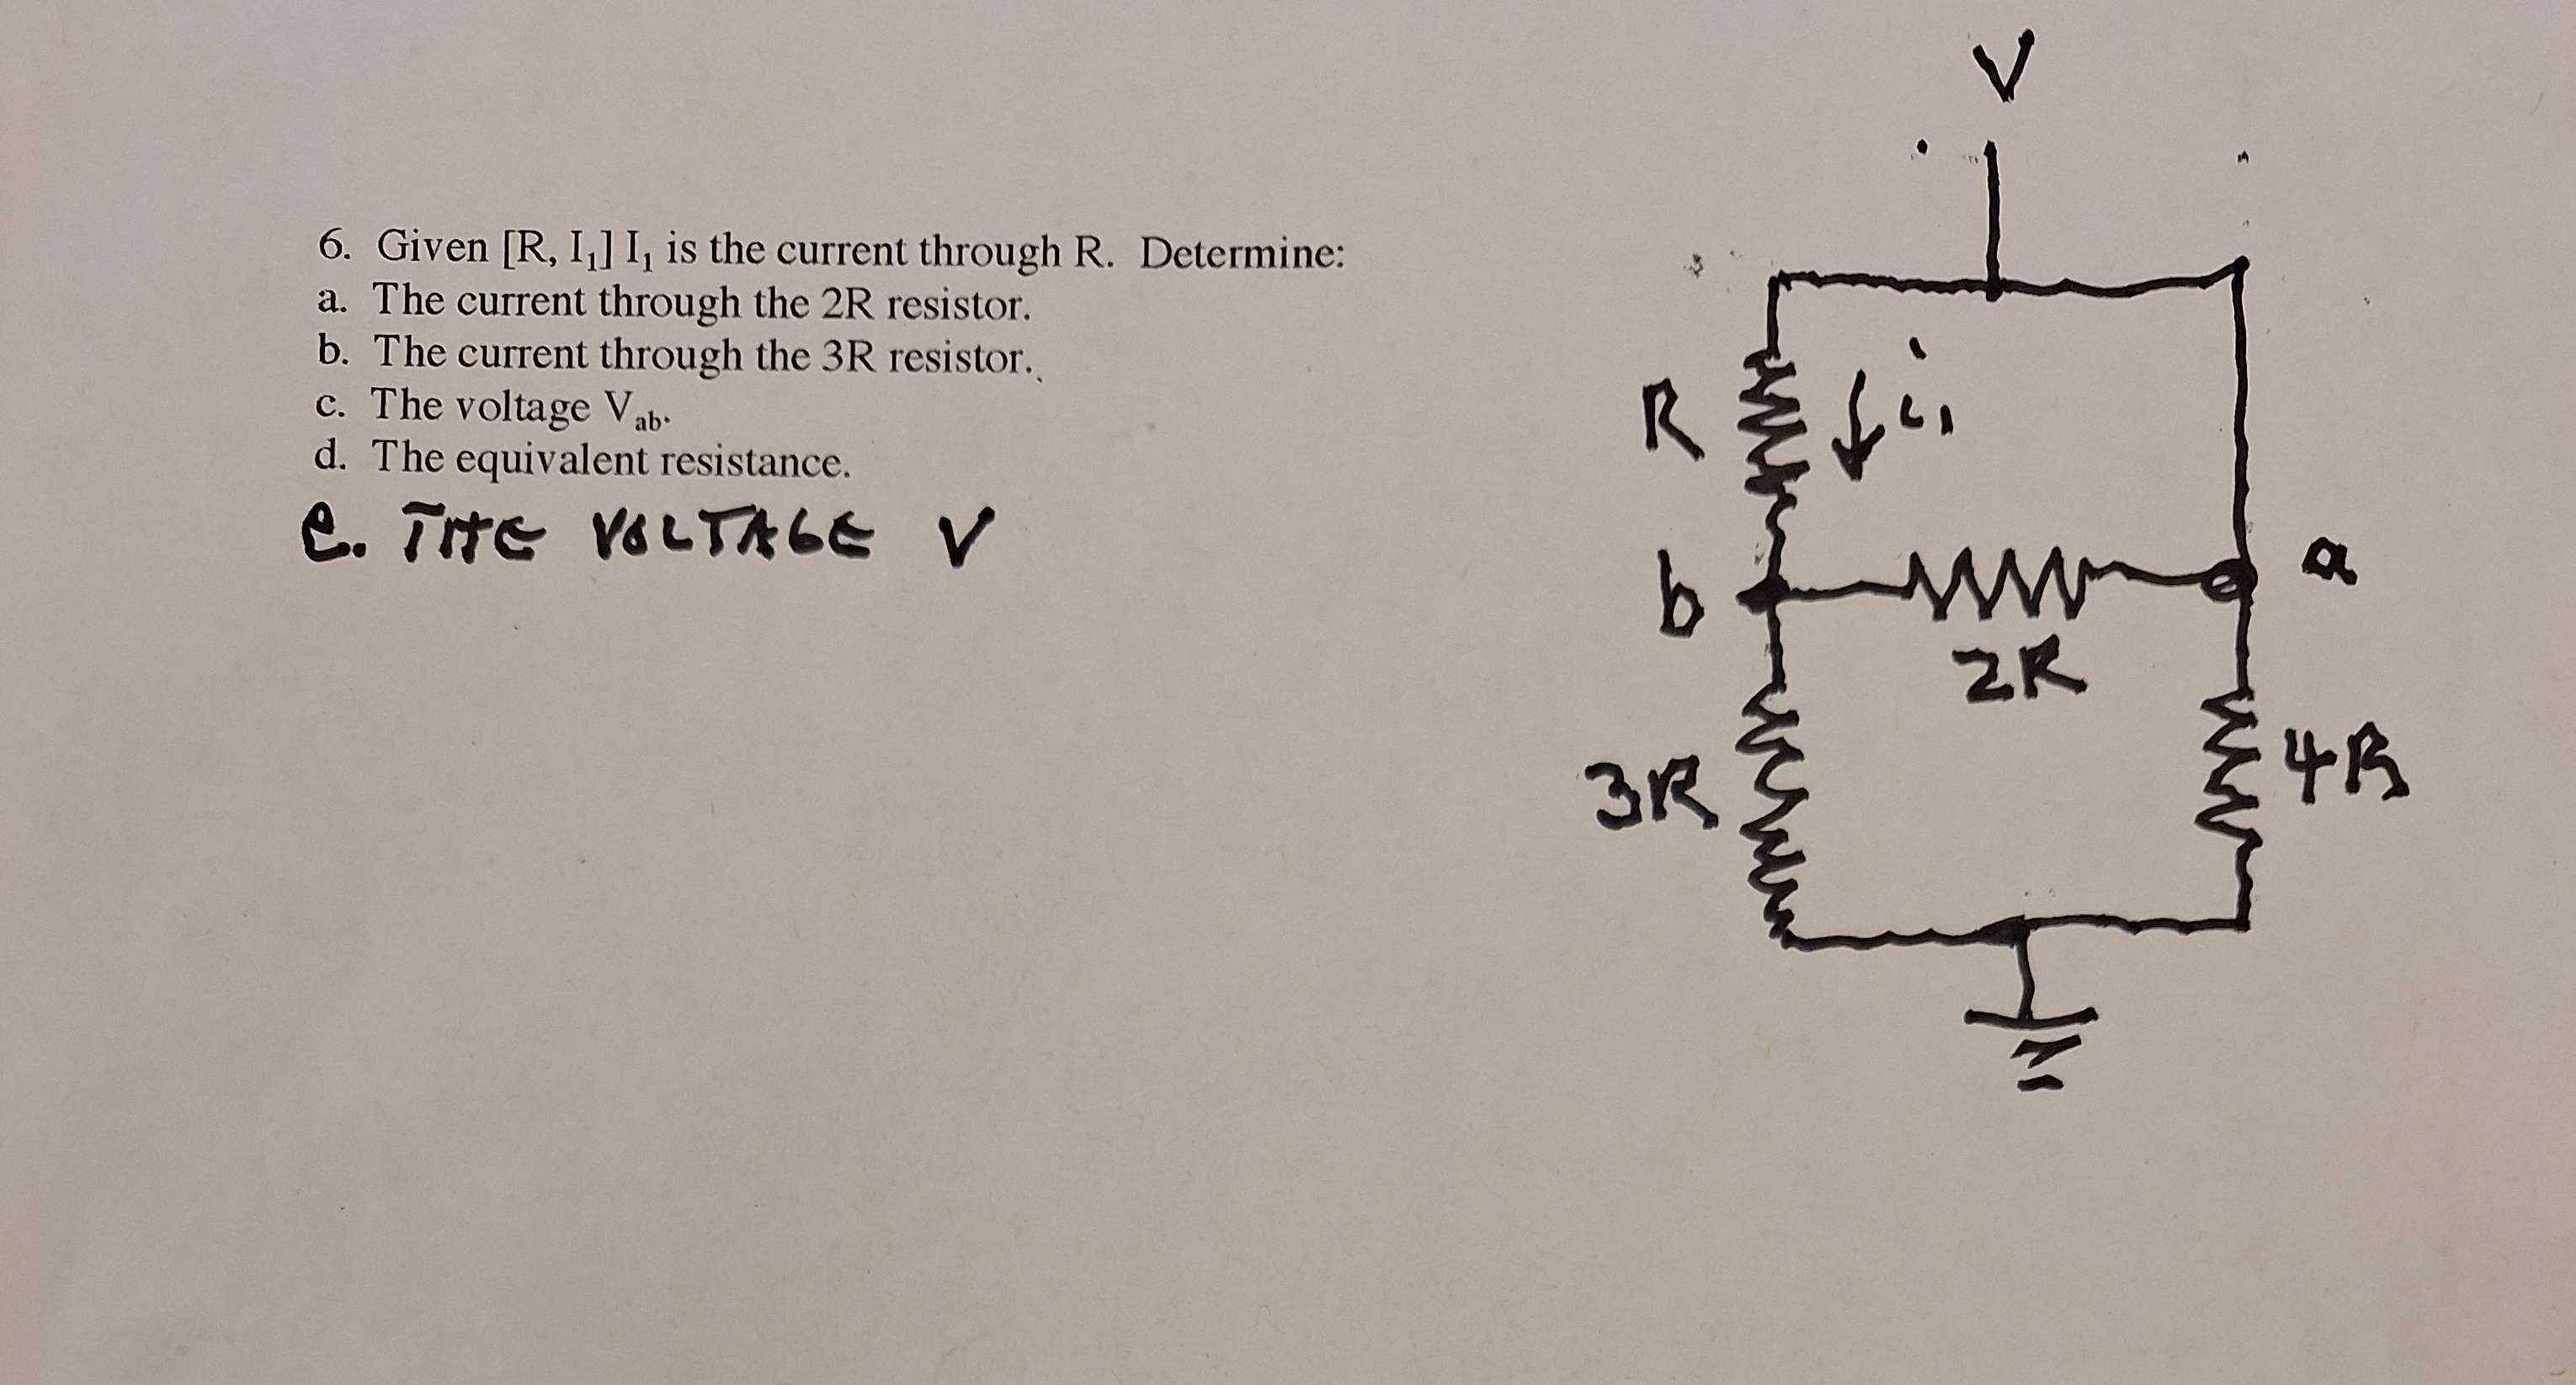 6. Given [R, I₁] I₁ is the current through R. Determine:
a. The current through the 2R resistor.
b. The current through the 3R resistor.
c. The voltage Vab.
d. The equivalent resistance.
e. THE VOLTAGE V
V
R
i₁
b
a
2R
3R
4R